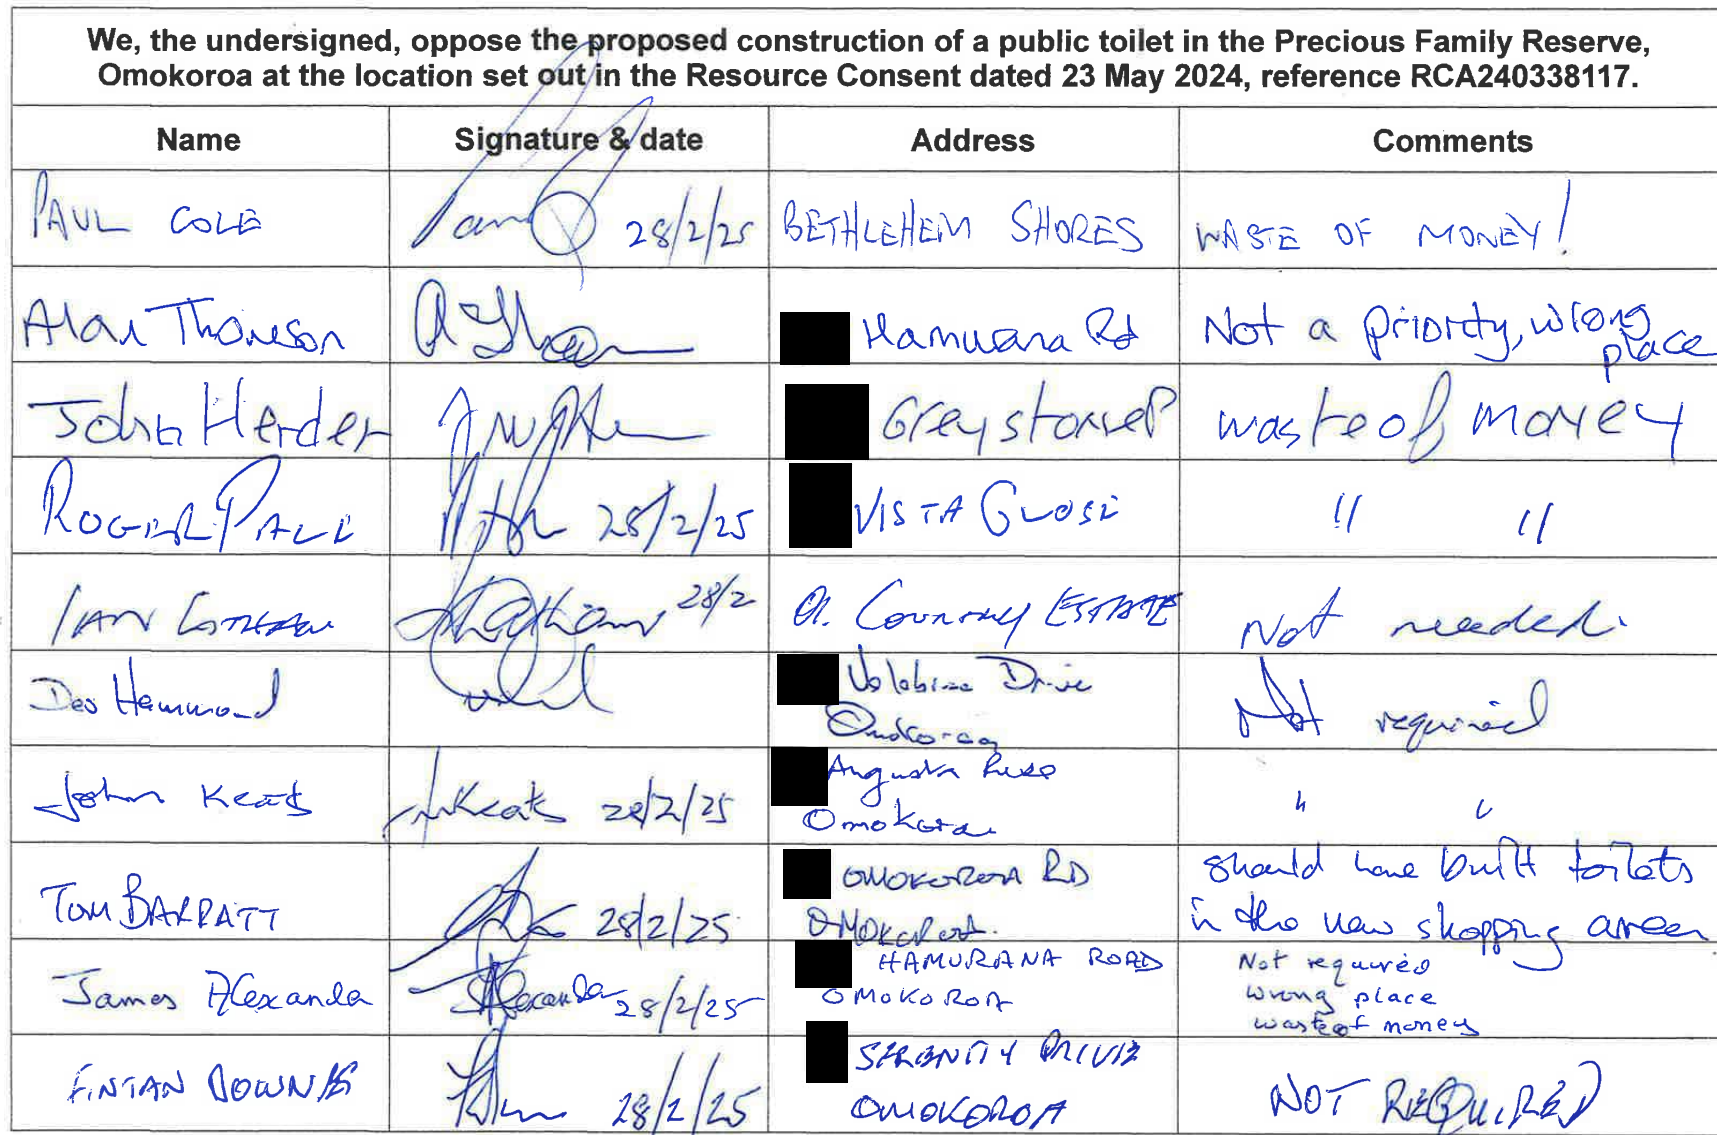 We, the undersigned, oppose the proposed construction of a public toilet in the Precious Family Reserve,
Omokoroa at the location set out in the Resource Consent dated 23 May 2024, reference RCA240338117.
Name Signature & date Address Comments
PAUL COLE 28/2/25 BETHLEHEM SHORES WASTE OF MONEY!
Alan Thomson Hamurana Rd Not a priority, wrong
place
John Herder Greystone P waste of money
ROGER PALL 28/2/25 VISTA CLOSE " "
IAN 28/2 COUNTRY ESTATE Not needed.
Des Hammond Drive
Omokoroa
Not required
John Keats JKeats 28/2/25 Augusta Rise
Omokoroa
" "
TOM BARRATT 28/2/25 OMOKOROA RD
OMOKOROA.
should have built toilets
in the new shopping areea
James Alexander JAlexander 28/2/25 HAMURANA ROAD
OMOKOROA
Not required
wrong place
waste of money
FINTAN DOWNES 28/2/25 SERENITY DRIVE
OMOKOROA
NOT REQUIRED